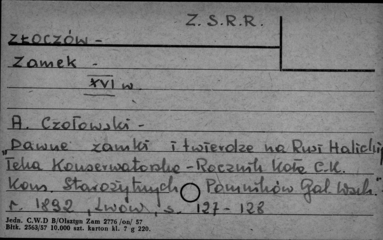 Z. S. R. R.
ZŁOCZÓW -
Zamek -
XVI w.
A. Czołowski -
"Dawne zamki i twierdze na Rusi Halickiej
Teka Konserwatorska - Rocznik Koła C.K.
Kom. Starożytnych Pomników Gal. Wsch."
r. 1892, Lwów, s. 127-128
Jedn. C.W.D B/Olsztyn Zam 2776 /on/ 57
Bltk. 2563/57 10.000 szt. karton kl. 7 g 220.